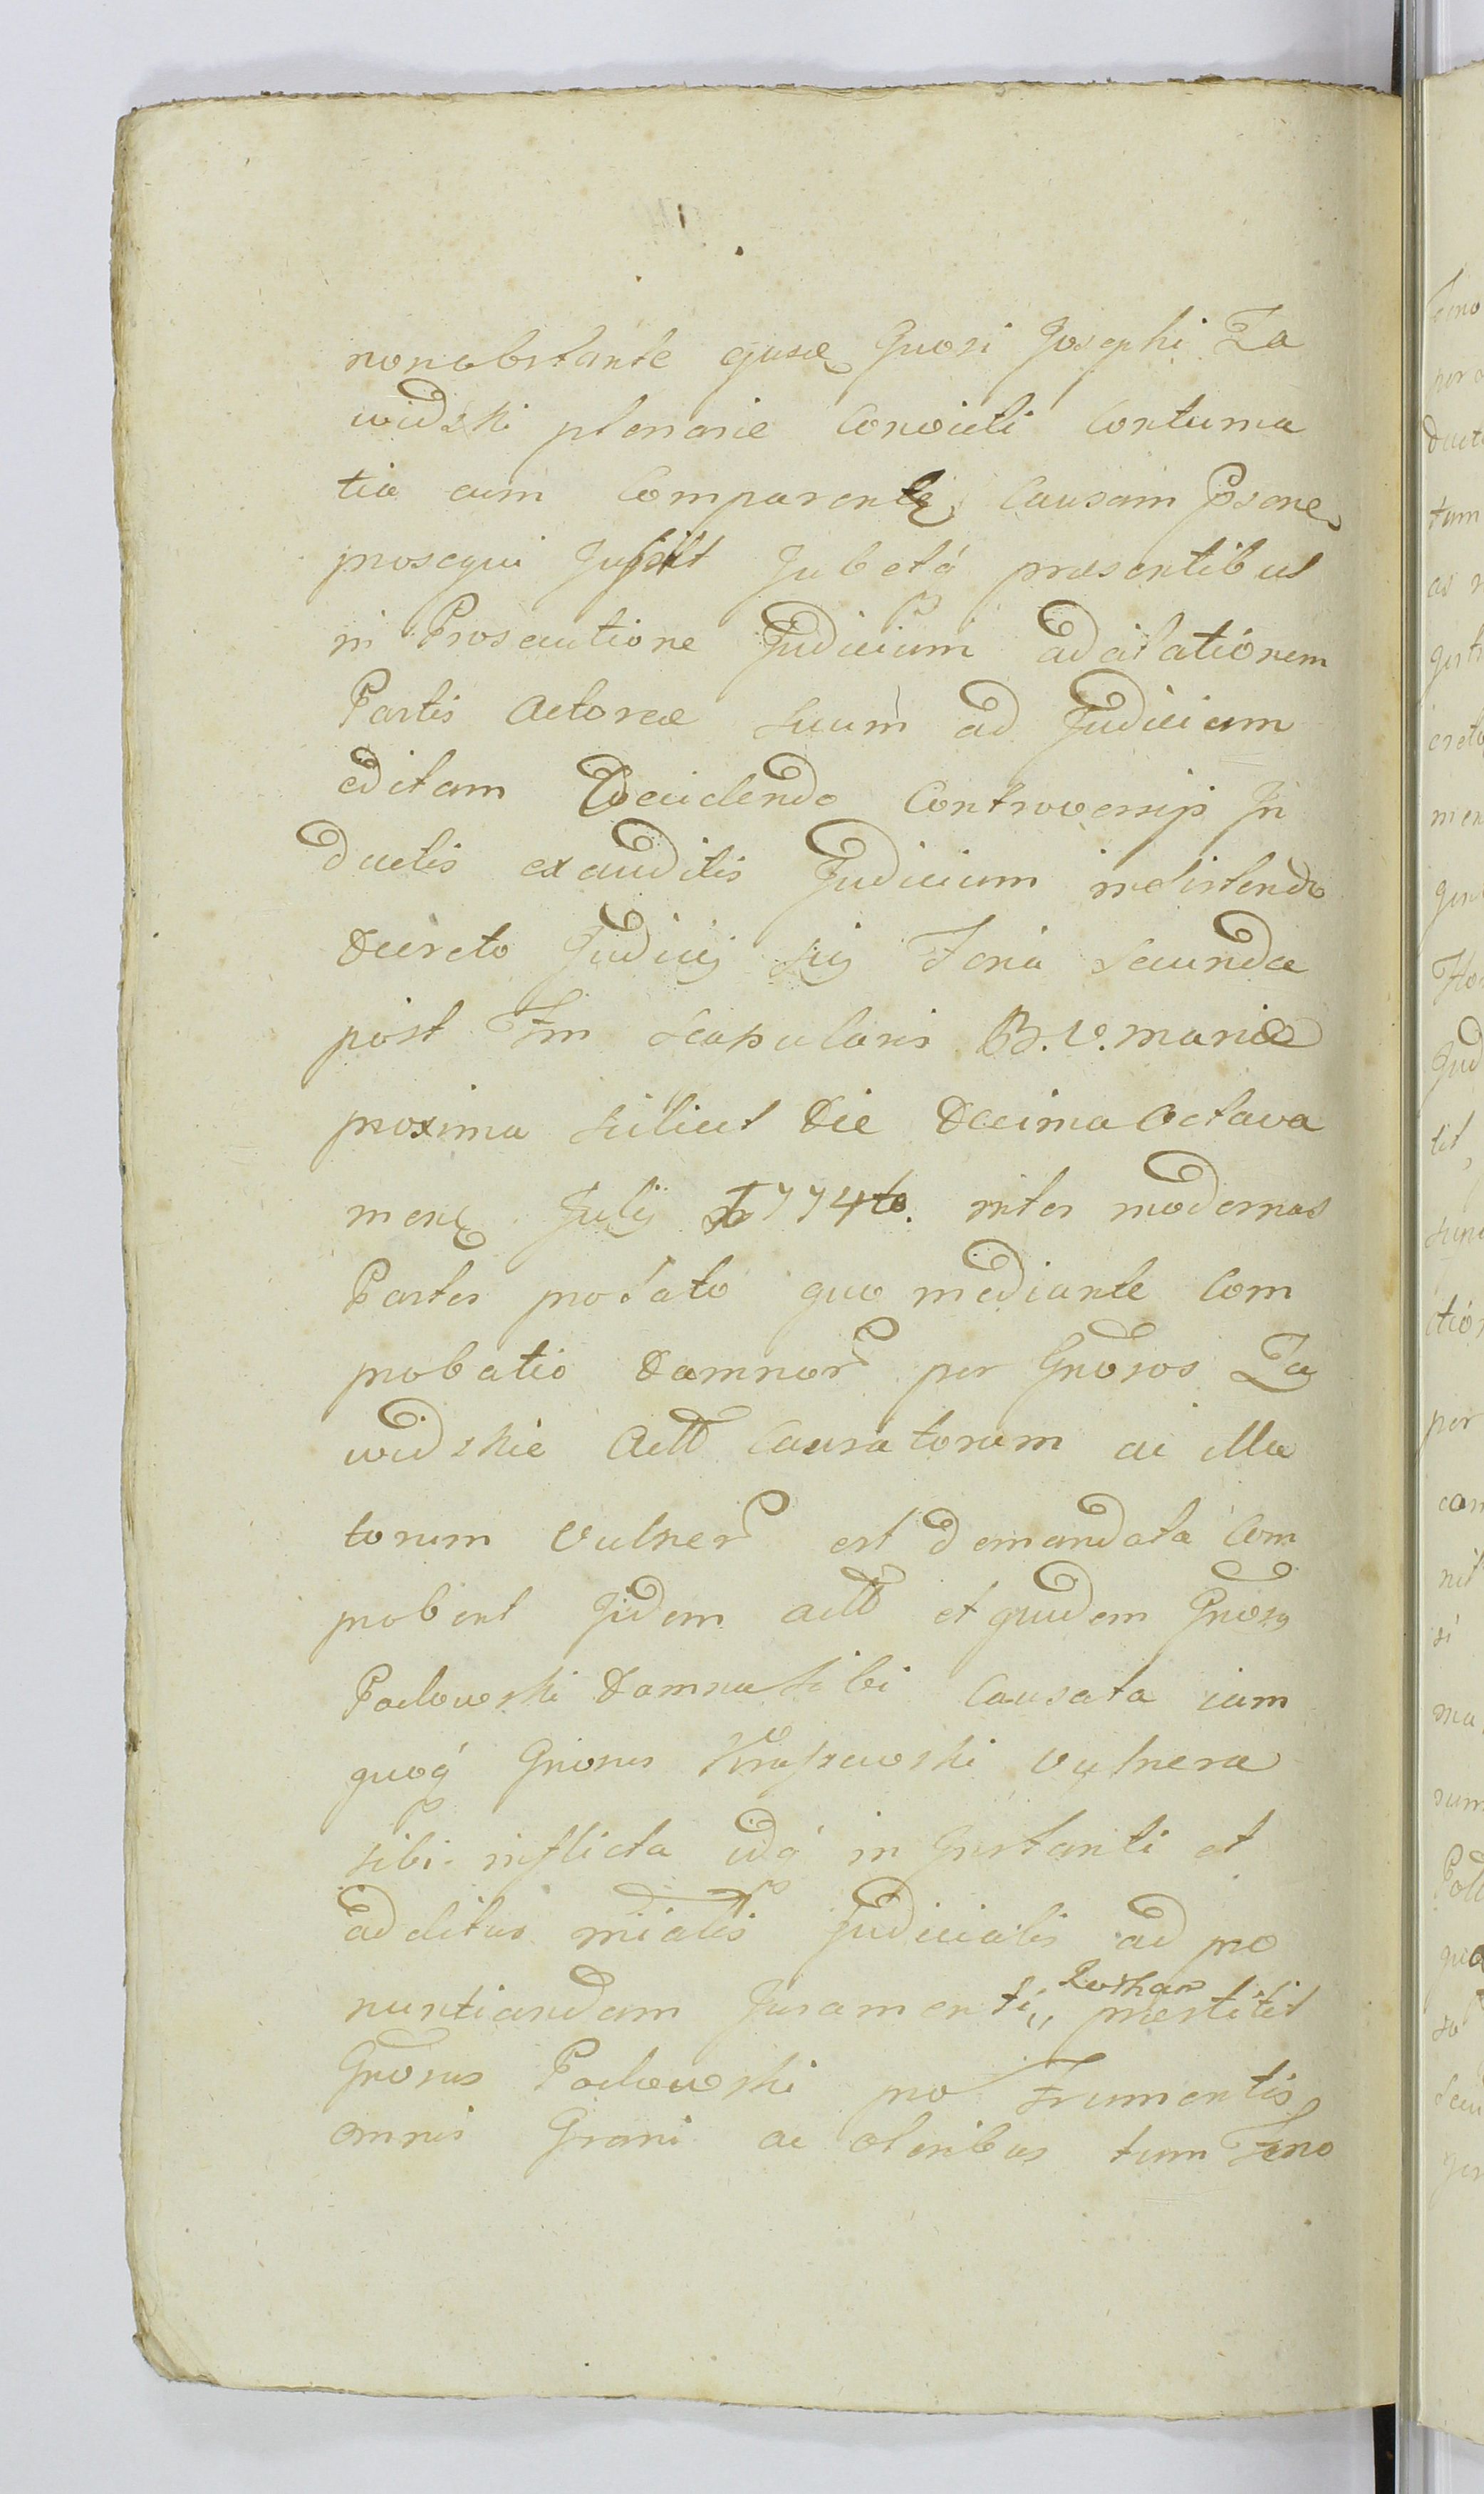 nonobstante ejusd Gnosi Josephi Za
widzki plenarie Convicti Contuma
tia cum Comparente Causam Psone
prosequi Jussit Jubetq́ praesentibus
in Prosecutione Judicium ad citationem
Partis Actoreae suum ad Judicium
editam Decidendo Controversijs In
ductis exauditis Judicium insistendo
Decreto Judicij sui Feria Secunda
post Fm Scapularis B. V. Mariae
proxima scilicet Die Decima Octava
mens Julij 1774to. inter modernas
Partes prolato quo mediante Com
probatio Damnor per Gnosos Za
widzkie Actt Causatorum ac illa
torum Vulner est demandata Com
probent Jidem actt et quidem Gnosus
Paclowski Damna sibi Causata iam
quoq́ Gnosus Kraszewski Vulnera
sibi inflicta idq́ in Instanti et
additus mialis Judicialis ad pro
nuntiandam Juramenti,, Rotham praestitit
Gnosus Paclowski pro Frumentis
omnis Grani ac oleribus tum Feno